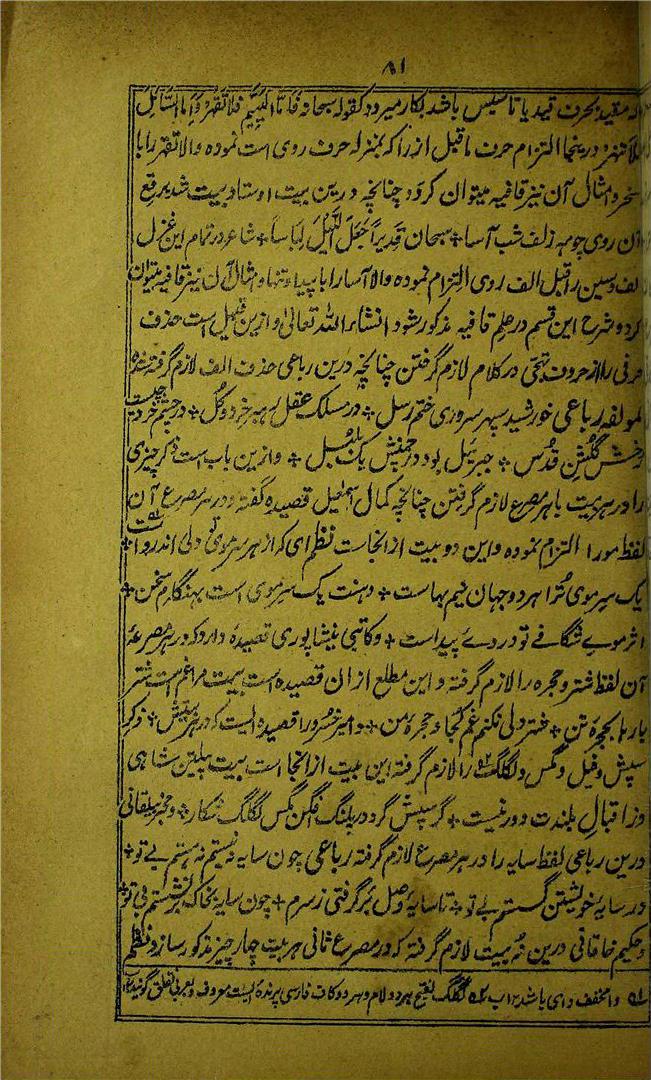 ۸۱
که مقید بحرف قید یا تاسیس باشد بکار میرود کقوله سبحانه فَاَمَّا الْیَتِیْمَ فَلَا تَقْهَرْ وَاَمَّا السَّائِلَ
فلا تنهر و درینجا التزام حرف ماقبل از را که بمنزله حرف روی است نموده والا تقهر را با
سخر و امثال آن نیز قافیه میتوان کرد و چنانچه درین بیت اوستاد بیت شد برقع
ازان روی چو مه زلف شب آسا ٭ سبحان قَدِیراً جَعَلَ اللَّیْلَ لِبَاسَا ٭ شاعر در تمام این غزل
الف و سین را قبل الف روی التزام نموده والا آسا را با پیدا و تنها و امثال آن نیز قافیه میتوان
کرد و شرح این قسم در علم قافیه مذکور شود انشاء الله تعالی و ازین قبیل است حذف
حرفی را از حروف تهجی در کلام لازم گرفتن چنانچه درین رباعی حذف الف لازم گرفته شده
لمولفه رباعی خورشید سپهر سروری ختم رسل ٭ در مسلک عقل رهبر جزو و کل ٭ در چشم خرد چیست
رخش گلشن قدس ٭ جبرئیل بود در چمنش یک بلبل ٭ وازین باب است ذکر چیزی
را در هر بیت یا هر مصرع لازم گرفتن چنانچه کمال اسمعیل قصیده گفته و در هر مصرع آن
لفظ مو را التزام نموده و این دو بیت ازانجاست نظم ای که از هر سر موی تو دلی اندر وا است ٭
یک سر موی ترا هر دو جهان نیم بهاست ٭ دهنت یک سر موی است بهنگام سخن ٭
اثر موی شگافے تو در وے پیداست ٭ و کاتبی نیشاپوری قصیده دارد که در هر مصرعهٔ
آن لفظ شتر و حجره را لازم گرفته و این مطلع ازان قصیده است بیت مرا غم است شتر
بارها بحجرهٔ تن ٭ شتر دلی نکنم غم کجا و حجرهٔ من ٭ و امیر خسرو را قصیده ایست که در هر بیتش ذکر
سپش و فیل و مگس و لگلگ را لازم گرفته این بیت ازانجا است بیت پیلتن شاهی
و از اقبال بلندت دور نیست ٭ گر سپش گردد پلنگ افگن مگس لگلگ شکار ٭ و مجیر بیلقانی
درین رباعی لفظ سایه را در هر مصرع لازم گرفته رباعی چون سایه دو نیستم نه هستم بے تو ٭
در سایهٔ خویشتن گسستم بے تو ٭ تا سایهٔ وصل برگرفتی ز سرم ٭ چون سایه بخاک بر نشستم بے تو ٭
و حکیم خاقانی درین نه بیت لازم گرفته که در مصرع ثانی هر بیت چهار چیز مذکور سازد نظم
۵۱ وا مخفف وای باشد ۵۲ لگلگ بفتح هر دو لام و هر دو کاف فارسی پرنده ایست معروف و بعربی لقلق گویند